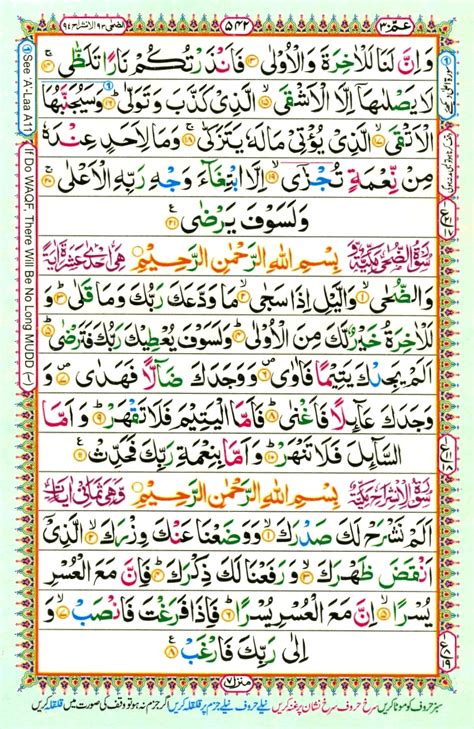 عمّ ٣٠
٥٤٢
الضحى ٩٣ الانشراح ٩٤
وَاِنَّ لَنَا لَلْاٰخِرَةَ وَالْاُوْلٰى ۝١٣ فَاَنْذَرْتُكُمْ نَارًا تَلَظّٰى ۝١٤
لَا يَصْلٰىهَاۤ اِلَّا الْاَشْقَى ۝١٥ الَّذِيْ كَذَّبَ وَتَوَلّٰى ۝١٦ وَسَيُجَنَّبُهَا
الْاَتْقَى ۝١٧ الَّذِيْ يُؤْتِيْ مَالَهٗ يَتَزَكّٰى ۝١٨ وَمَا لِاَحَدٍ عِنْدَهٗ
مِنْ نِّعْمَةٍ تُجْزٰۤى ۝١٩ اِلَّا ابْتِغَآءَ وَجْهِ رَبِّهِ الْاَعْلٰى ۝٢٠
وَلَسَوْفَ يَرْضٰى ۝٢١
سُوْرَةُ الضُّحٰى مَكِّيَّةٌ بِسْمِ اللهِ الرَّحْمٰنِ الرَّحِيْمِ هِيَ اِحْدٰى عَشْرَةَ اٰيَةً
وَالضُّحٰى ۝١ وَالَّيْلِ اِذَا سَجٰى ۝٢ مَا وَدَّعَكَ رَبُّكَ وَمَا قَلٰى ۝٣ وَ
لَلْاٰخِرَةُ خَيْرٌ لَّكَ مِنَ الْاُوْلٰى ۝٤ وَلَسَوْفَ يُعْطِيْكَ رَبُّكَ فَتَرْضٰى ۝٥
اَلَمْ يَجِدْكَ يَتِيْمًا فَاٰوٰى ۝٦ وَوَجَدَكَ ضَآلًّا فَهَدٰى ۝٧ وَ
وَجَدَكَ عَآئِلًا فَاَغْنٰى ۝٨ فَاَمَّا الْيَتِيْمَ فَلَا تَقْهَرْ ۝٩ وَاَمَّا
السَّآئِلَ فَلَا تَنْهَرْ ۝١٠ وَاَمَّا بِنِعْمَةِ رَبِّكَ فَحَدِّثْ ۝١١
سُوْرَةُ الْاِنْشِرَاحِ مَكِّيَّةٌ بِسْمِ اللهِ الرَّحْمٰنِ الرَّحِيْمِ وَهِيَ ثَمَانِيْ اٰيَاتٍ
اَلَمْ نَشْرَحْ لَكَ صَدْرَكَ ۝١ وَوَضَعْنَا عَنْكَ وِزْرَكَ ۝٢ الَّذِيْۤ
اَنْقَضَ ظَهْرَكَ ۝٣ وَرَفَعْنَا لَكَ ذِكْرَكَ ۝٤ فَاِنَّ مَعَ الْعُسْرِ
يُسْرًا ۝٥ اِنَّ مَعَ الْعُسْرِ يُسْرًا ۝٦ فَاِذَا فَرَغْتَ فَانْصَبْ ۝٧ وَ
اِلٰى رَبِّكَ فَارْغَبْ ۝٨
منزل ٧
سبز حروف کو موٹا کریں سرخ حروف سرخ نشان پر غنہ کریں نیلے حروف نیلے جزم پر قلقلہ کریں اگر جزم نہ ہو تو وقف کی صورت میں قلقلہ کریں
See 'A-Laa A11
If Do WAQF, There Will Be No Long MUDD (~)